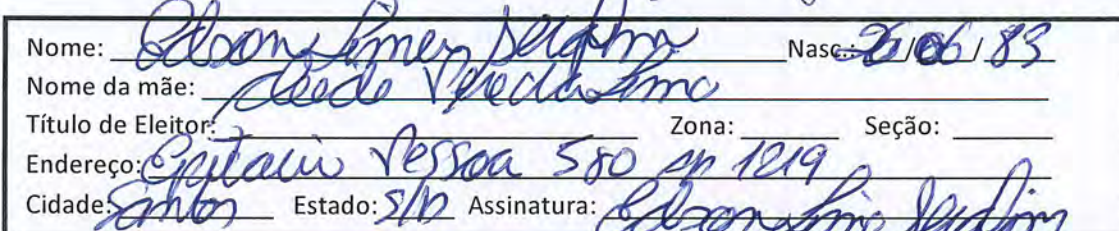 Nome: Edson Simer Serafim Nasc.: 26/06/83
Nome da mãe: Cleede
Título de Eleitor: Zona: Seção:
Endereço: Epitacio Pessoa 580 ap 1219
Cidade: Santos Estado: S/P Assinatura: Edson